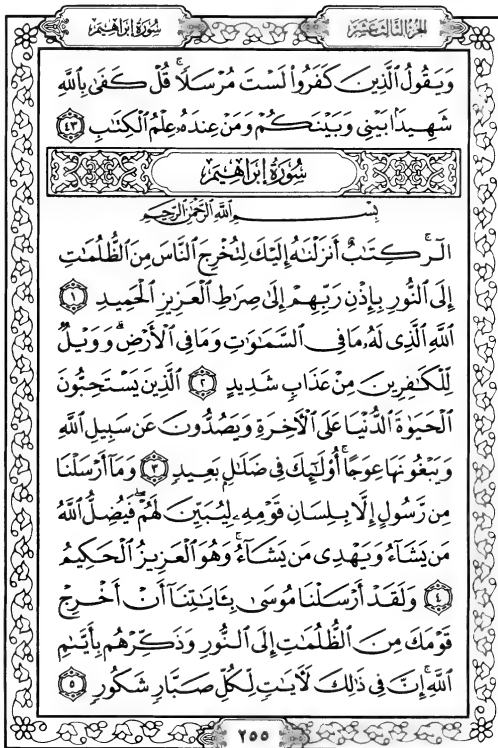 الجزء الثالث عشر
سُورَةُ إِبْرَاهِيمَ
وَيَقُولُ ٱلَّذِينَ كَفَرُواْ لَسْتَ مُرْسَلًاۚ قُلْ كَفَىٰ بِٱللَّهِ
شَهِيدًۢا بَيْنِى وَبَيْنَكُمْ وَمَنْ عِندَهُۥ عِلْمُ ٱلْكِتَٰبِ ٤٣
سُورَةُ إِبْرَاهِيمَ
بِسْمِ ٱللَّهِ ٱلرَّحْمَٰنِ ٱلرَّحِيمِ
الٓرۚ كِتَٰبٌ أَنزَلْنَٰهُ إِلَيْكَ لِتُخْرِجَ ٱلنَّاسَ مِنَ ٱلظُّلُمَٰتِ
إِلَى ٱلنُّورِ بِإِذْنِ رَبِّهِمْ إِلَىٰ صِرَٰطِ ٱلْعَزِيزِ ٱلْحَمِيدِ ١
ٱللَّهِ ٱلَّذِى لَهُۥ مَا فِى ٱلسَّمَٰوَٰتِ وَمَا فِى ٱلْأَرْضِۗ وَوَيْلٌ
لِّلْكَٰفِرِينَ مِنْ عَذَابٍ شَدِيدٍ ٢ ٱلَّذِينَ يَسْتَحِبُّونَ
ٱلْحَيَوٰةَ ٱلدُّنْيَا عَلَى ٱلْأَخِرَةِ وَيَصُدُّونَ عَن سَبِيلِ ٱللَّهِ
وَيَبْغُونَهَا عِوَجًاۚ أُوْلَٰٓئِكَ فِى ضَلَٰلٍۭ بَعِيدٍ ٣ وَمَآ أَرْسَلْنَا
مِن رَّسُولٍ إِلَّا بِلِسَانِ قَوْمِهِۦ لِيُبَيِّنَ لَهُمْۖ فَيُضِلُّ ٱللَّهُ
مَن يَشَآءُ وَيَهْدِى مَن يَشَآءُۚ وَهُوَ ٱلْعَزِيزُ ٱلْحَكِيمُ
٤ وَلَقَدْ أَرْسَلْنَا مُوسَىٰ بِـَٔايَٰتِنَآ أَنْ أَخْرِجْ
قَوْمَكَ مِنَ ٱلظُّلُمَٰتِ إِلَى ٱلنُّورِ وَذَكِّرْهُم بِأَيَّىٰمِ
ٱللَّهِۚ إِنَّ فِى ذَٰلِكَ لَأَيَٰتٍ لِّكُلِّ صَبَّارٍ شَكُورٍ ٥
٢٥٥